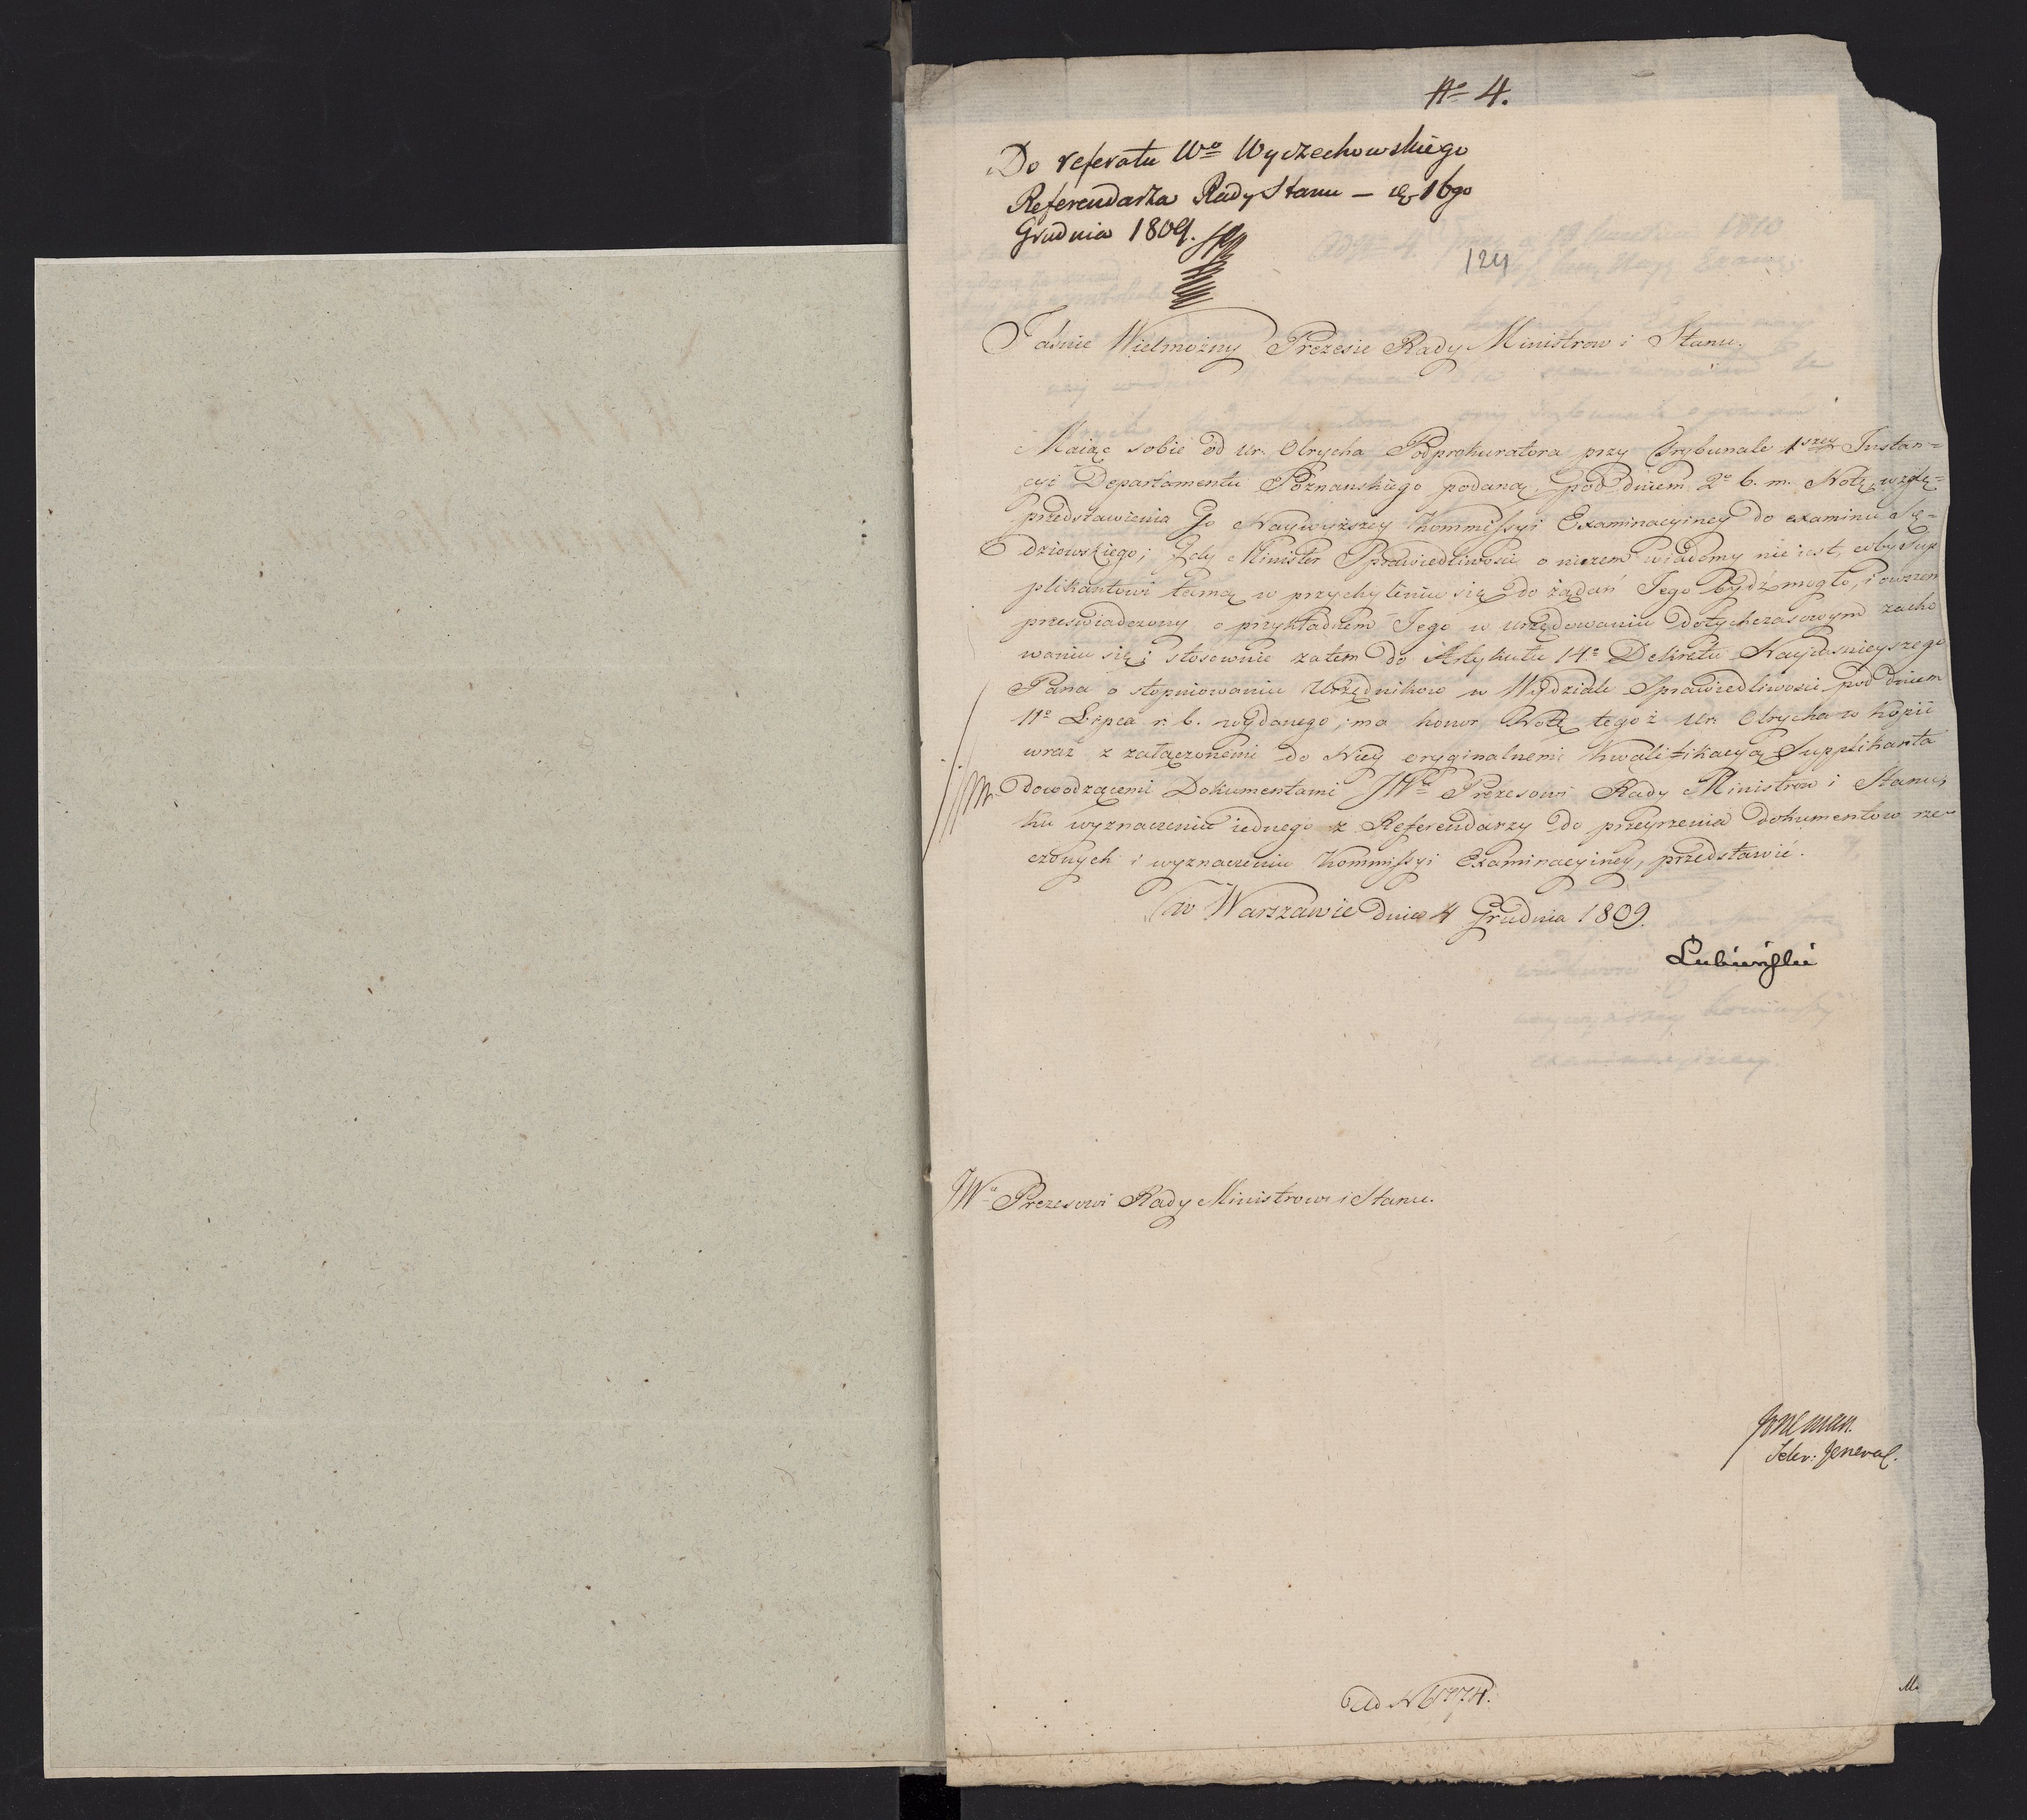 No 4.
Do referatu Wo Wyczechowskiego
Referendarza Rady Stanu — 16go
Grudnia 1809.
124
Jaśnie Wielmożny Prezesie Rady Ministrow i Stanu.
Maiąc sobie od Ur. Olrycha Podprokuratora przy Trybunale 1szey Instan=
cyi Departamentu Poznanskiego podaną, pod dniem 2o b. m. Notę, wzglę=
przedstawienia Go Naywyższey Kommissyi Examinacyiney do examinu Sę=
dziowskiego; Gdy Minister Sprawiedliwości o niczem wiadomy nie iest, coby Sup
plikantowi tamą w przychyleniu się do żądań Jego bydź mogło, i owszem
przeświadczony o przykładnem Jego w urzędowaniu dotychczasowym zacho
waniu się; stosownie zatem do Artykułu 14o Dekretu Nayjaśnieyszego
Pana o stopniowaniu Urzędnikow w Wydziale Sprawiedliwości pod dniem
11o Lipca r. b. wydanego, ma honor Notę tegoż Ur. Olrycha w Kopii
wraz z załączonemi do Niey oryginalnemi kwalifikacyą Supplikanta
dowodzącemi Dokumentami JWu Prezesowi Rady Ministrow i Stanu,
ku wyznaczeniu iednego z Referendarzy do przeyrzenia dokumentow rze=
czonych i wyznaczeniu Kommissyi Examinacyiney, przedstawić.
w Warszawie dnia 4 Grudnia 1809.
Łubieński
JWu Prezesowi Rady Ministrow i Stanu.
Joneman.
Sekr: Jeneral.
Ad N 6774.